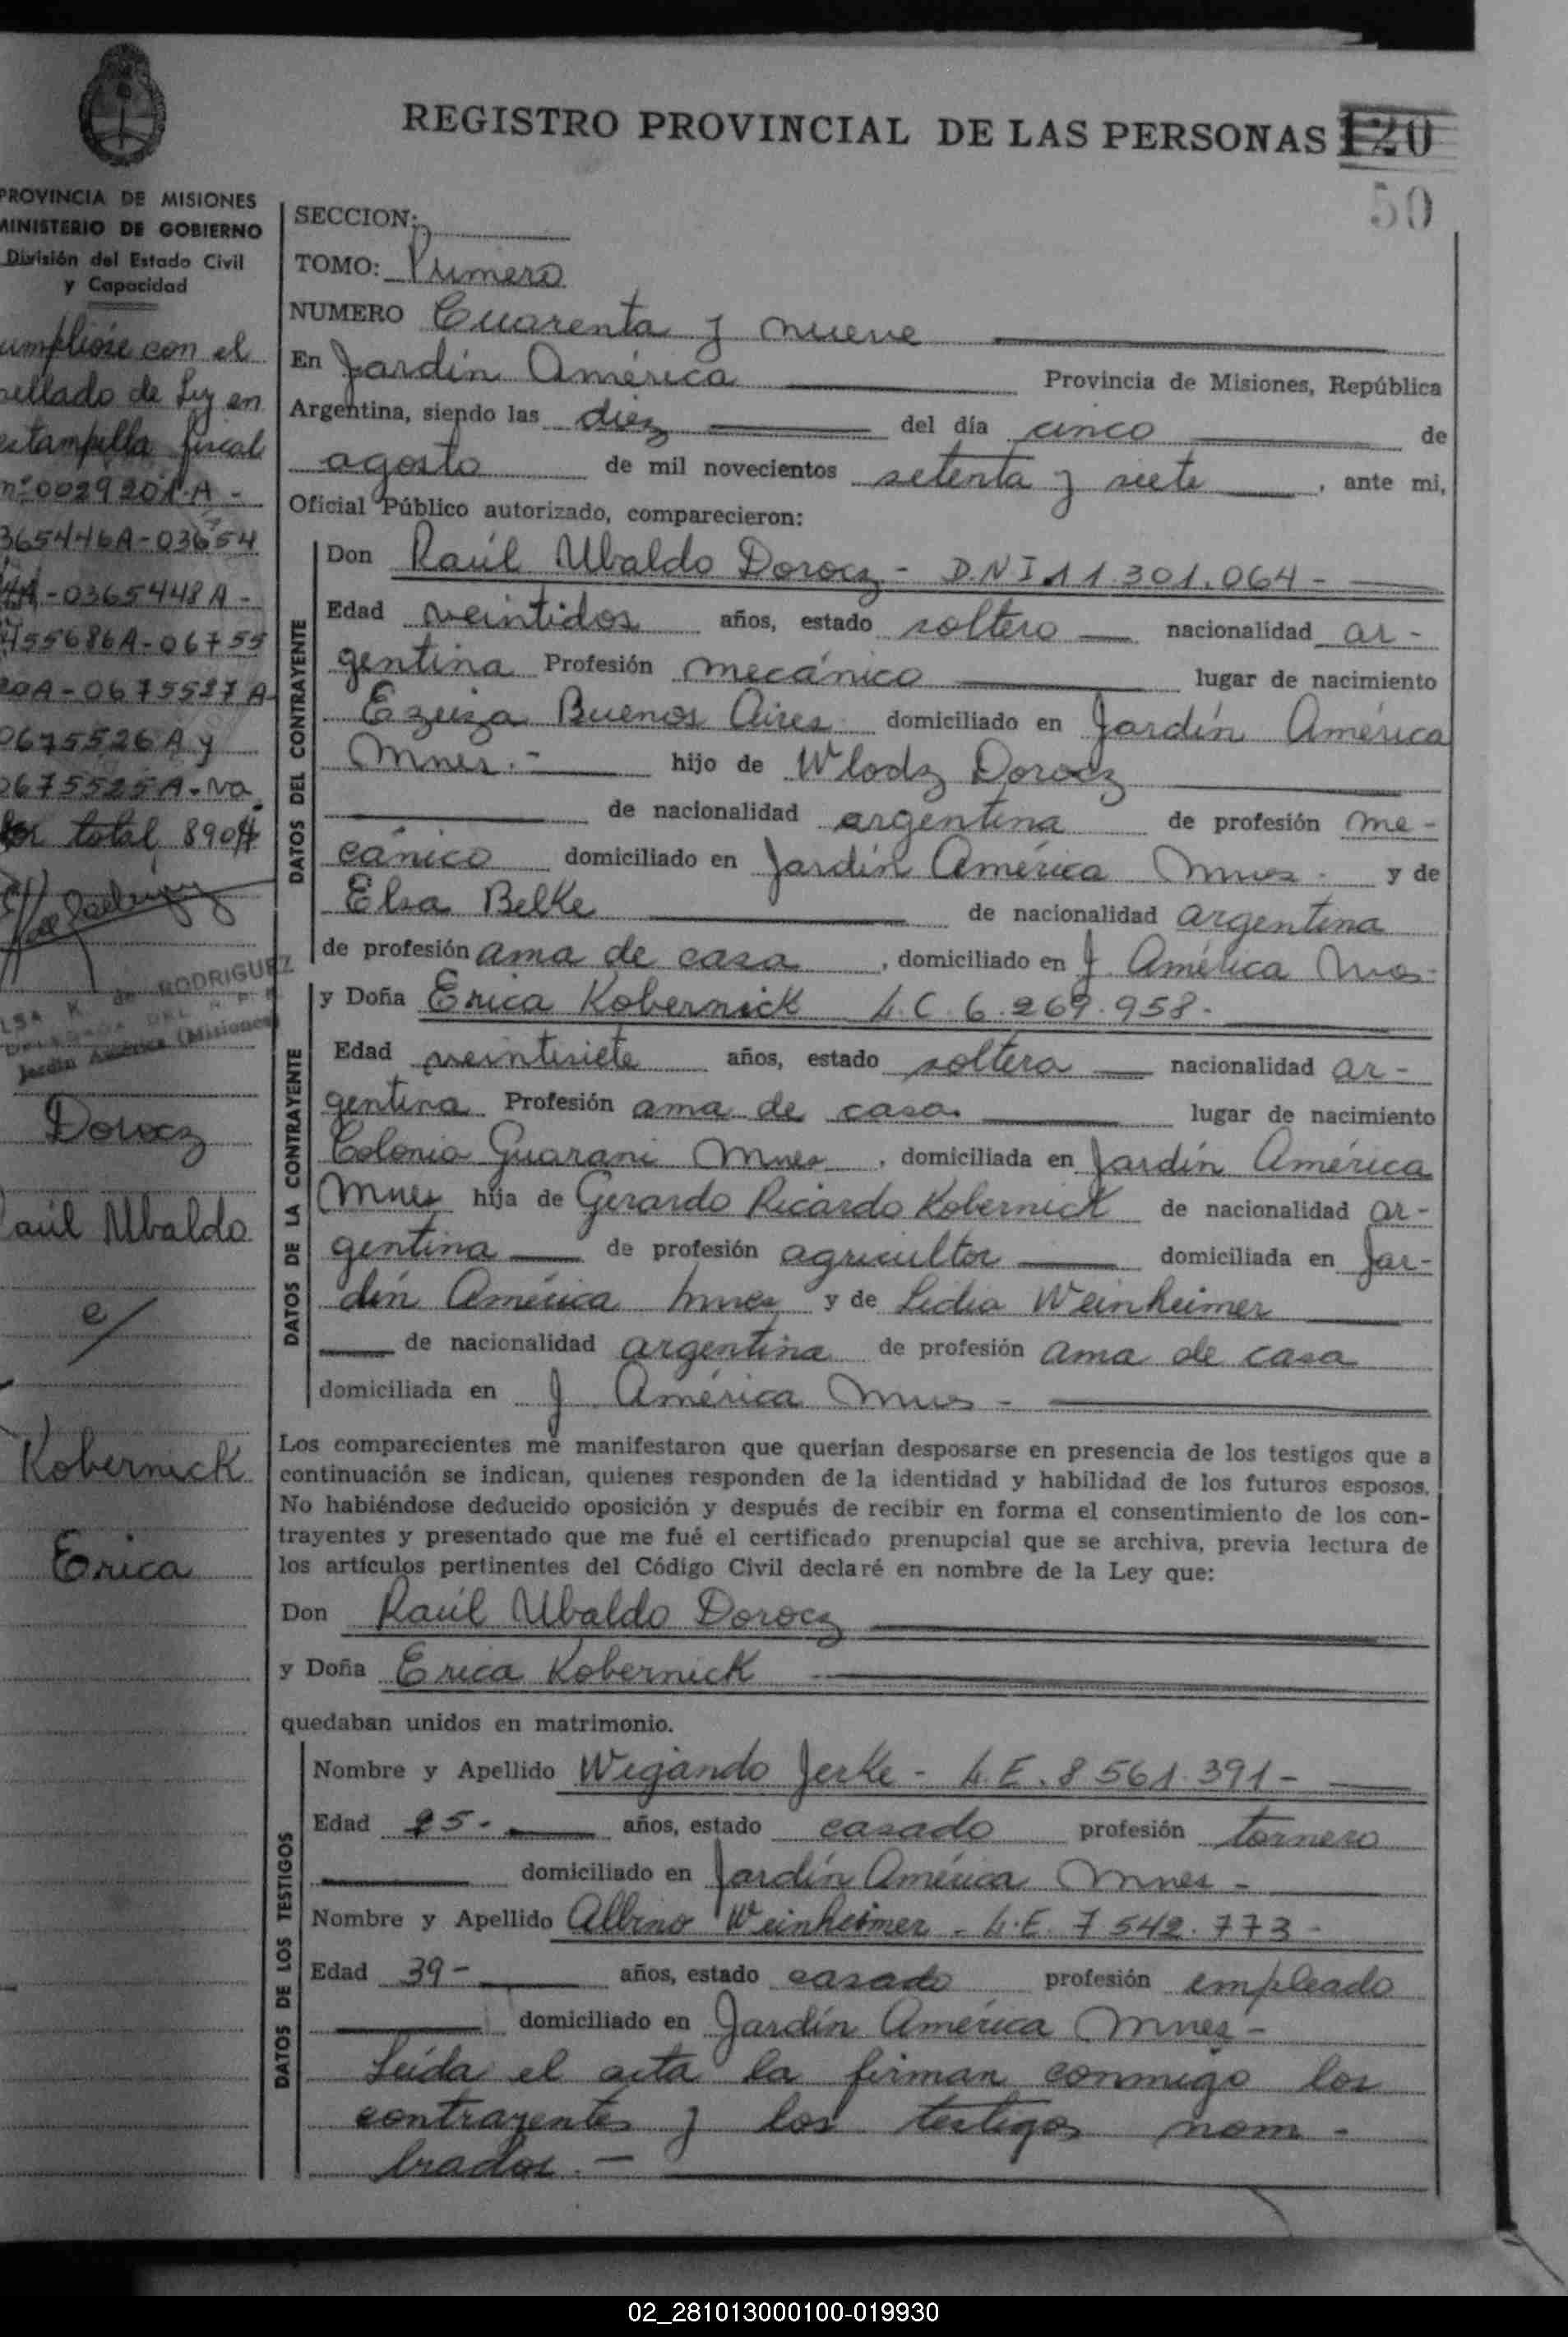 REGISTRO PROVINCIAL DE LAS PERSONAS 120
50
PROVINCIA DE MISIONES
MINISTERIO DE GOBIERNO
División del Estado Civil
y Capacidad
umplióse con el
sellado de Ley en
estampilla fiscal
nº 0029201-A -
365446A-03654
-0365448A-
755686A-06755
0A-0675527A-
0675526A y
0675525A-Va
lor total 890
RODRIGUEZ
Jardín América (Misiones)
Dorocz
aúl Ubaldo
e/
Kobernick
Erica
SECCION:
TOMO: Primero
NUMERO Cuarenta y nueve
En Jardín América Provincia de Misiones, República
Argentina, siendo las diez del día cinco de
agosto de mil novecientos setenta y siete, ante mi,
Oficial Público autorizado, comparecieron:
DATOS DEL CONTRAYENTE
Don Raúl Ubaldo Dorocz - D.N.I 11.301.064 -
Edad veintidos años, estado soltero nacionalidad ar-
gentina Profesión mecánico lugar de nacimiento
Ezeiza Buenos Aires domiciliado en Jardín América
Mnes.- hijo de Wlodz Dorocz
de nacionalidad argentina de profesión me-
cánico domiciliado en Jardín América Mnes. y de
Elsa Belke de nacionalidad argentina
de profesión ama de casa, domiciliado en J América Mnes.
DATOS DE LA CONTRAYENTE
y Doña Erica Kobernick L.C 6.269.958-
Edad veintisiete años, estado soltera nacionalidad ar-
gentina Profesión ama de casa lugar de nacimiento
Colonia Guarani Mnes, domiciliada en Jardín América
Mnes hija de Gerardo Ricardo Kobernick de nacionalidad ar-
gentina de profesión agricultor domiciliada en Jar-
dín América Mnes y de Lidia Weinheimer
de nacionalidad argentina de profesión ama de casa
domiciliada en J América Mnes -
Los comparecientes me manifestaron que querían desposarse en presencia de los testigos que a
continuación se indican, quienes responden de la identidad y habilidad de los futuros esposos.
No habiéndose deducido oposición y después de recibir en forma el consentimiento de los con-
trayentes y presentado que me fué el certificado prenupcial que se archiva, previa lectura de
los artículos pertinentes del Código Civil declaré en nombre de la Ley que:
Don Raúl Ubaldo Dorocz
y Doña Erica Kobernick
quedaban unidos en matrimonio.
DATOS DE LOS TESTIGOS
Nombre y Apellido Wigando Jerke - L.E. 8 561.391 -
Edad 25- años, estado casado profesión tornero
domiciliado en Jardín América Mnes -
Nombre y Apellido Albino Weinheimer - L.E. 7 542.773 -
Edad 39 - años, estado casado profesión empleado
domiciliado en Jardín América Mnes -
Leída el acta la firman conmigo los
contrayentes y los testigos nom -
brados. -
02_281013000100-019930